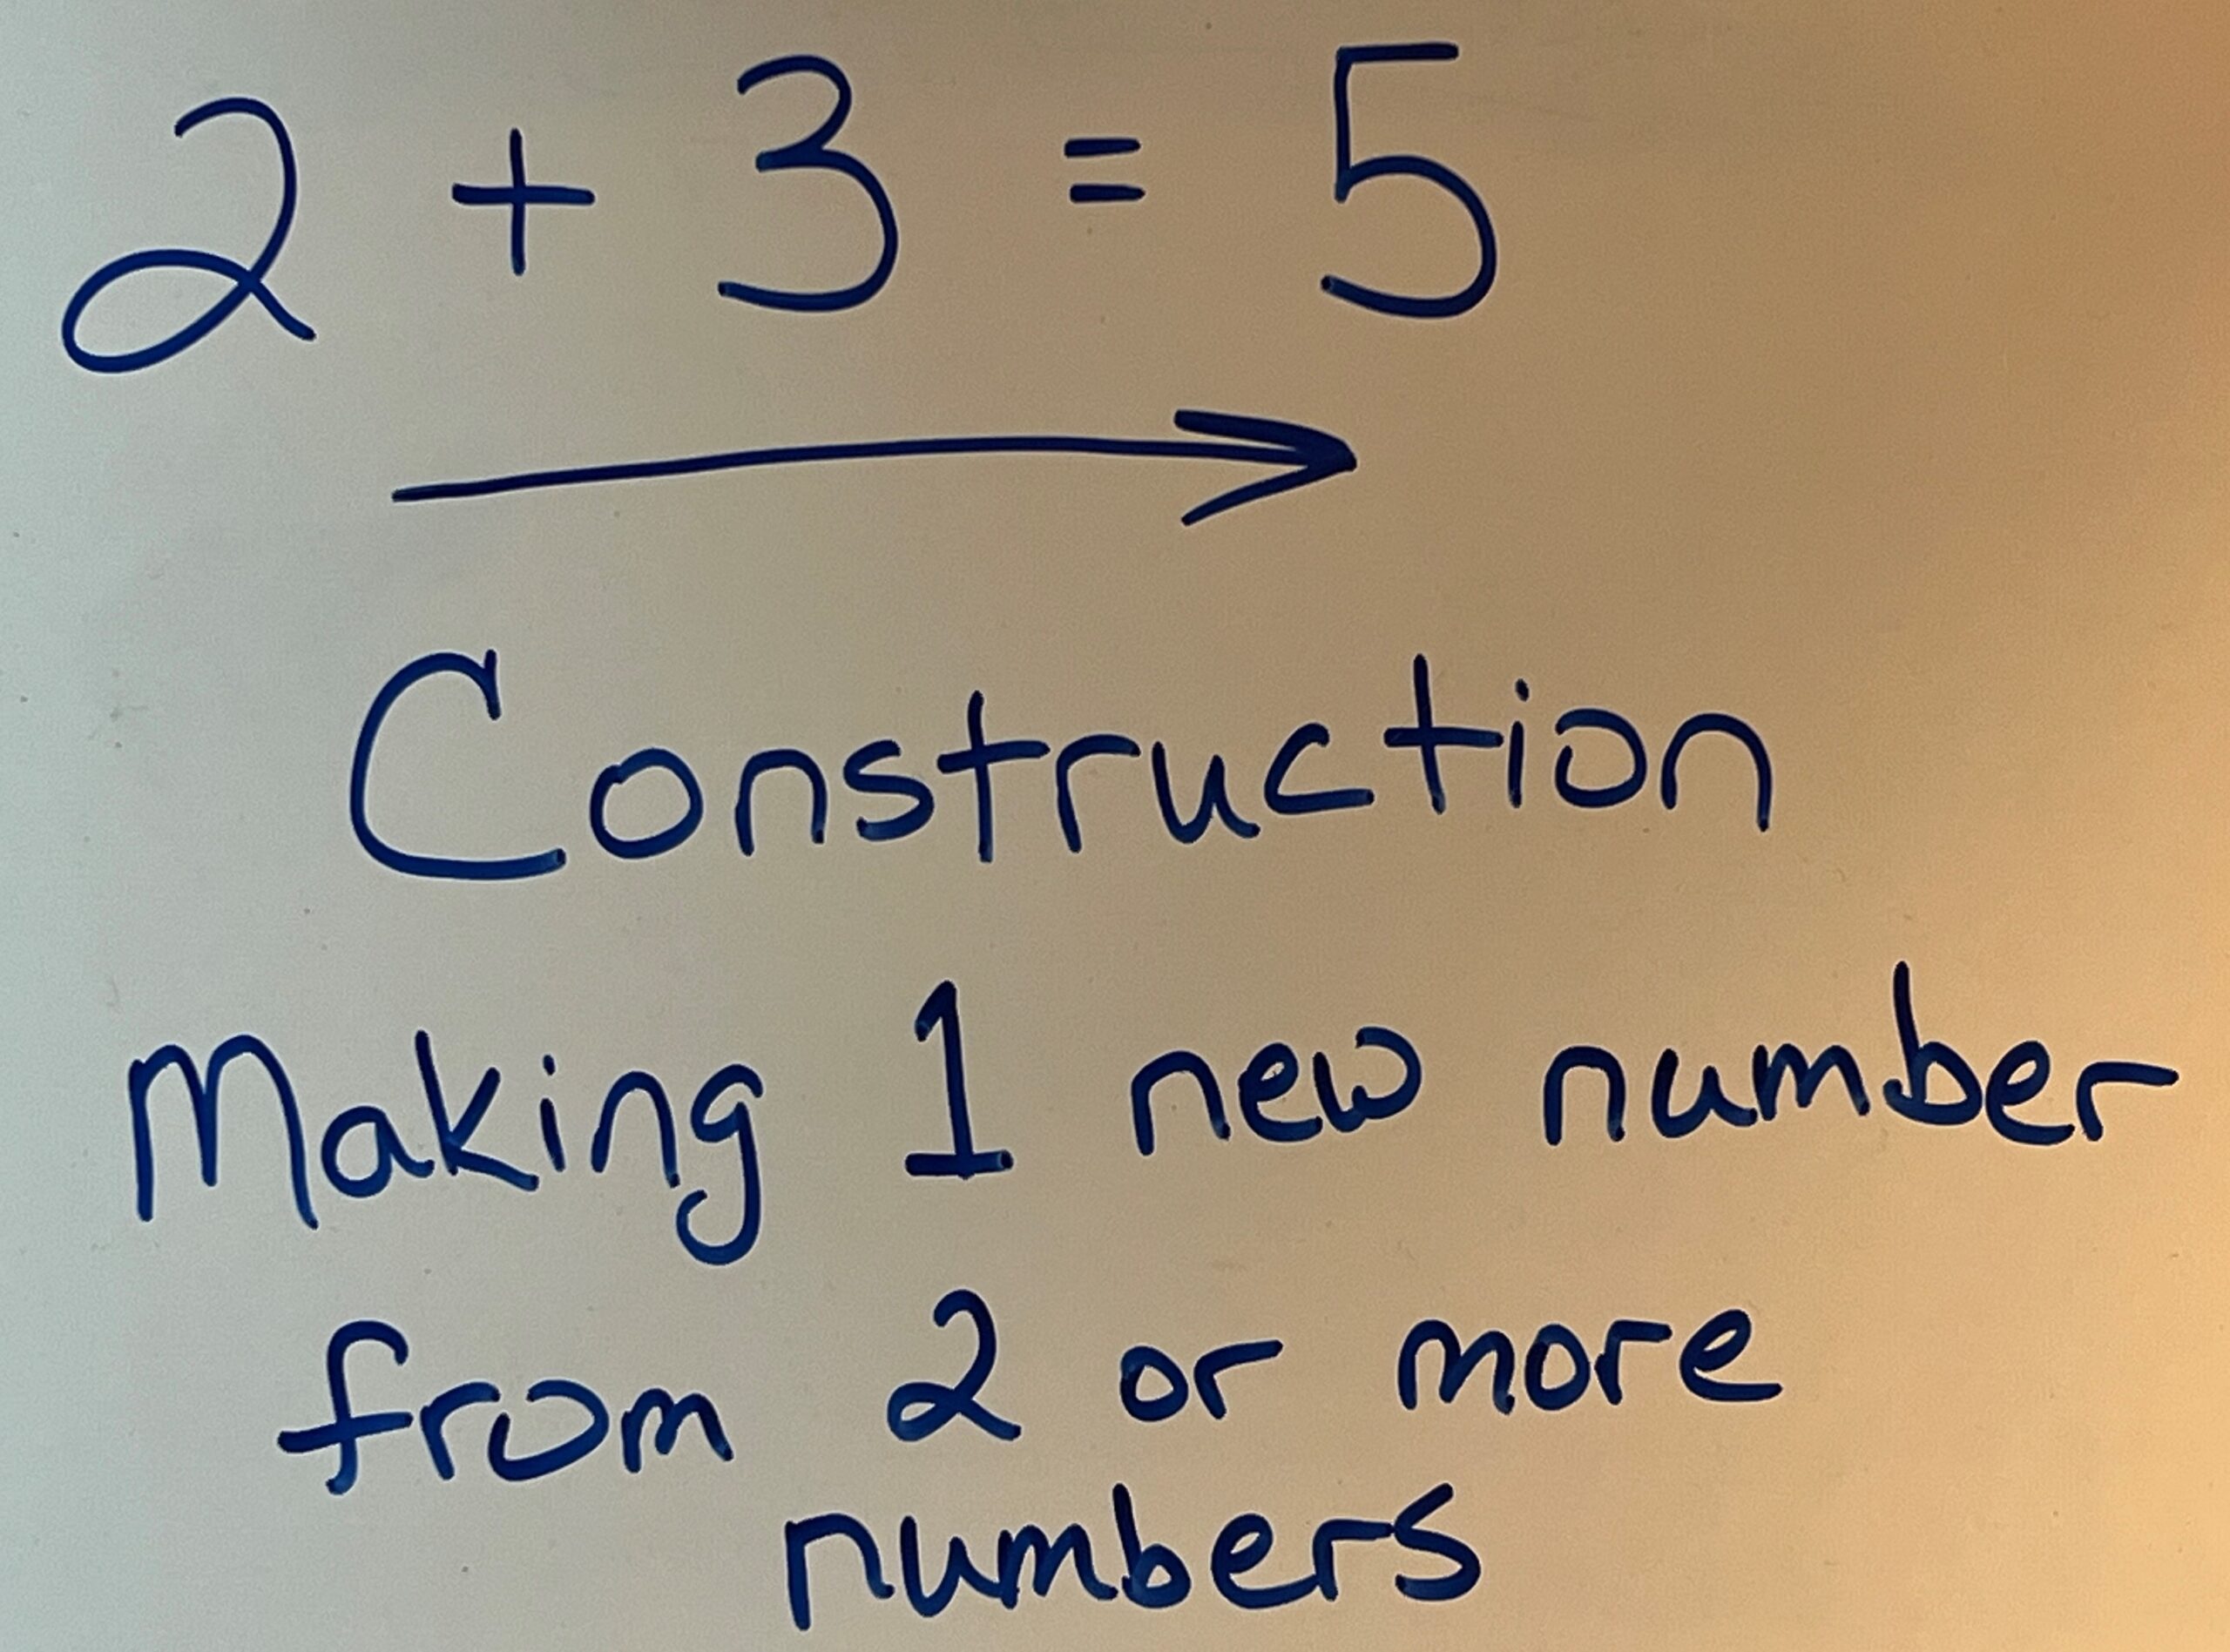 2 + 3 = 5
Construction
Making 1 new number
from 2 or more
numbers